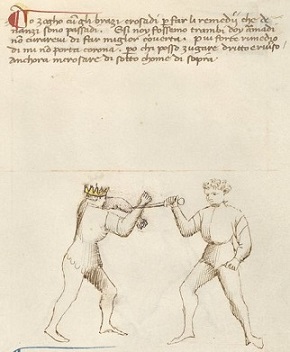 Io zogho cũ gli brazi crosadi p far li remedii che de
nanzi sono passadi. E si noy fossemo trambi doy armadi
nõ curarevi di far miglor coverta. Piu forte rimedio
di mi nõ porta corona. po che posso zugare dritto e riverso
Anchora incrosare di sotto chome di sopra.